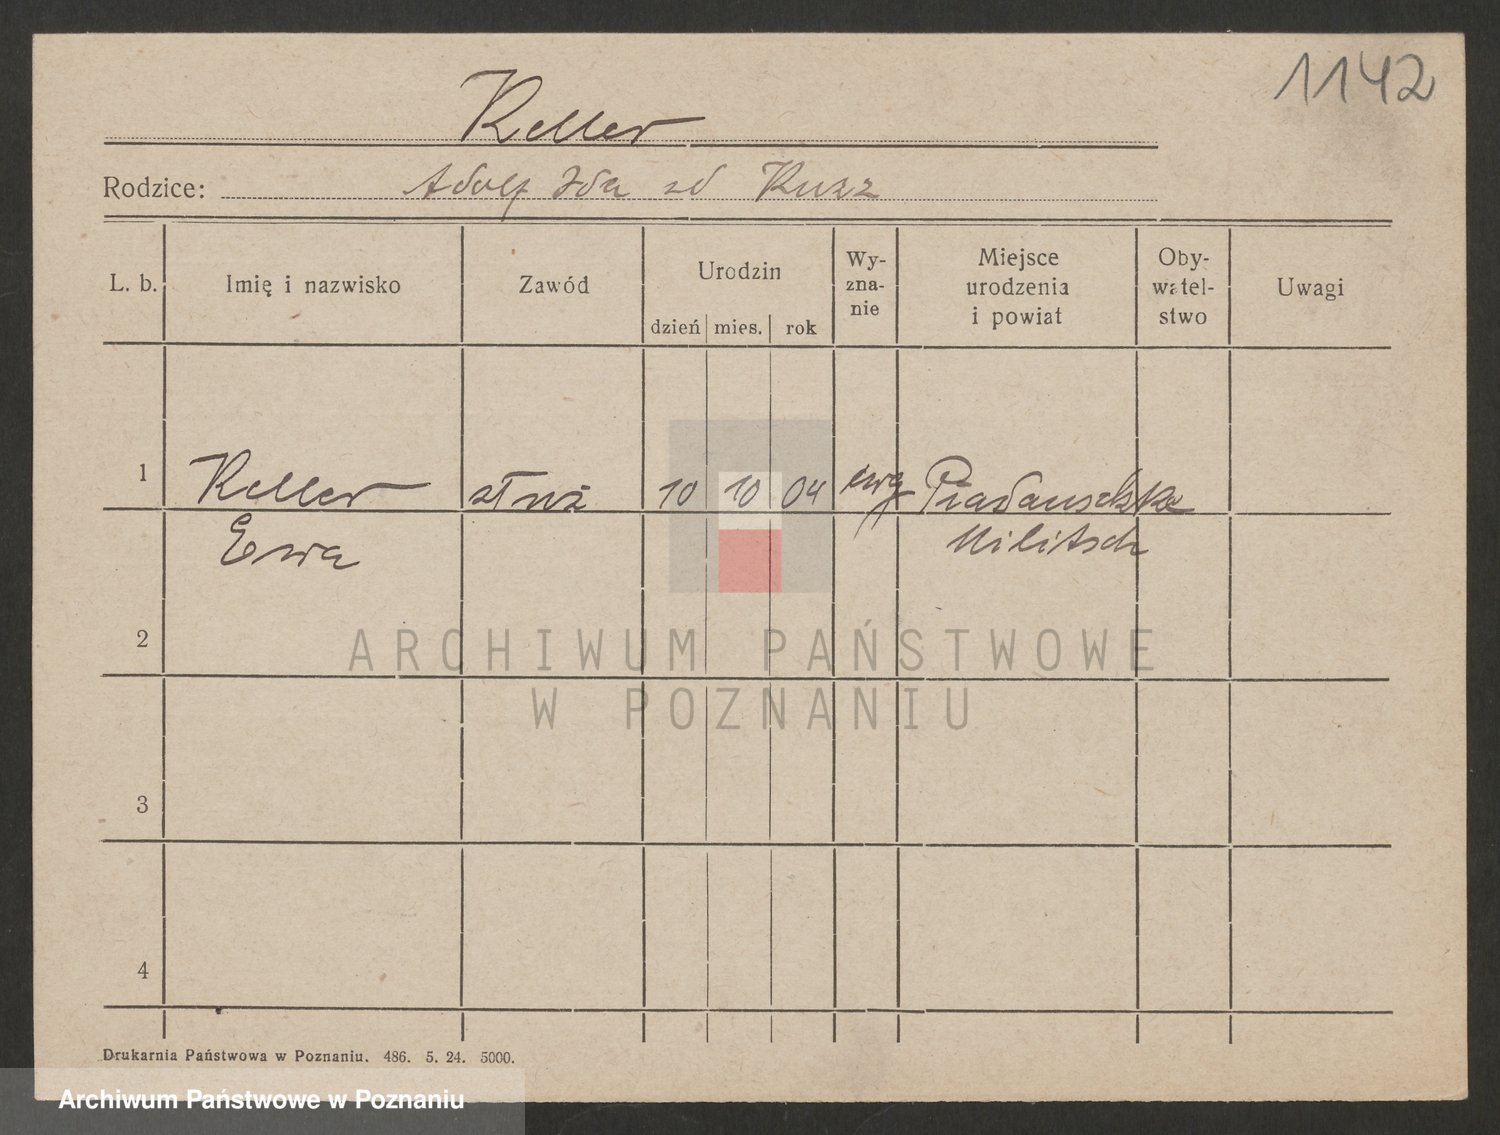 1142
Keller
Rodzice: Adolf Ida zd Kurz
L. b. Imię i nazwisko Zawód Urodzin dzień mies. rok Wy-zna-nie Miejsce urodzenia i powiat Oby-watel-stwo Uwagi
1 Keller służ 10 10 04 ewg
Ewa Militsch
2
ARCHIWUM PAŃSTWOWE
W POZNANIU
3
4
Drukarnia Państwowa w Poznaniu. 486. 5. 24. 5000.
Archiwum Państwowe w Poznaniu